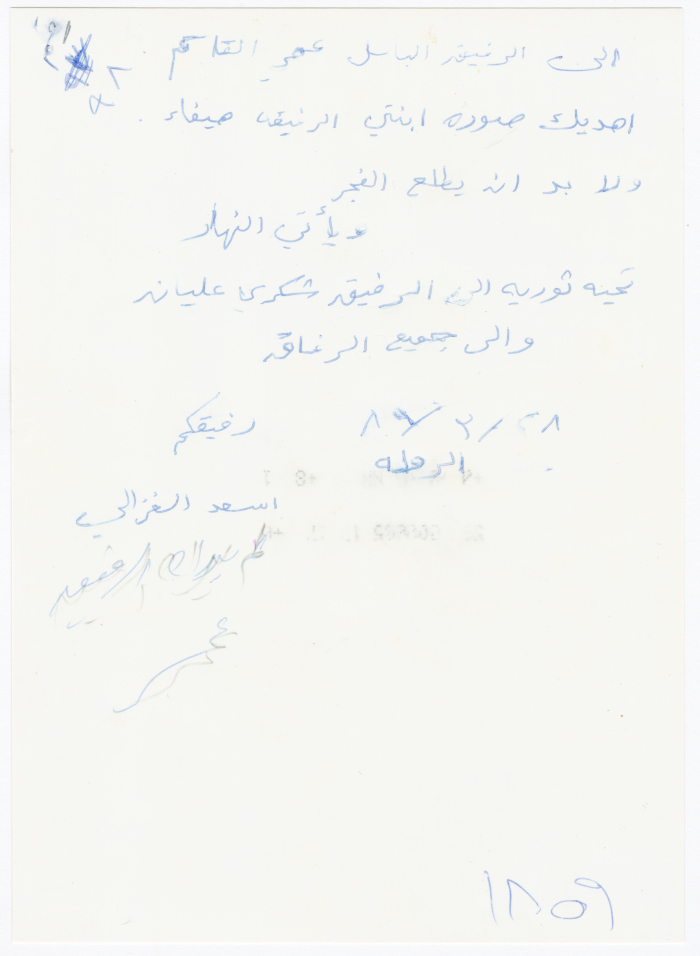 الى الرفيق الباسل عمر القاسم
اهديك صوره ابنتي الرفيقه هيفاء.
ولا بد ان يطلع الفجر
ويأتي النهار
تحيه ثوريه الى الرفيق شكري عليان
والى جميع الرفاق
٢٨/٣/٨٧ رفيقكم
الرمله
اسعد الغزالي
الرفيق
عمر
١٨٥٩